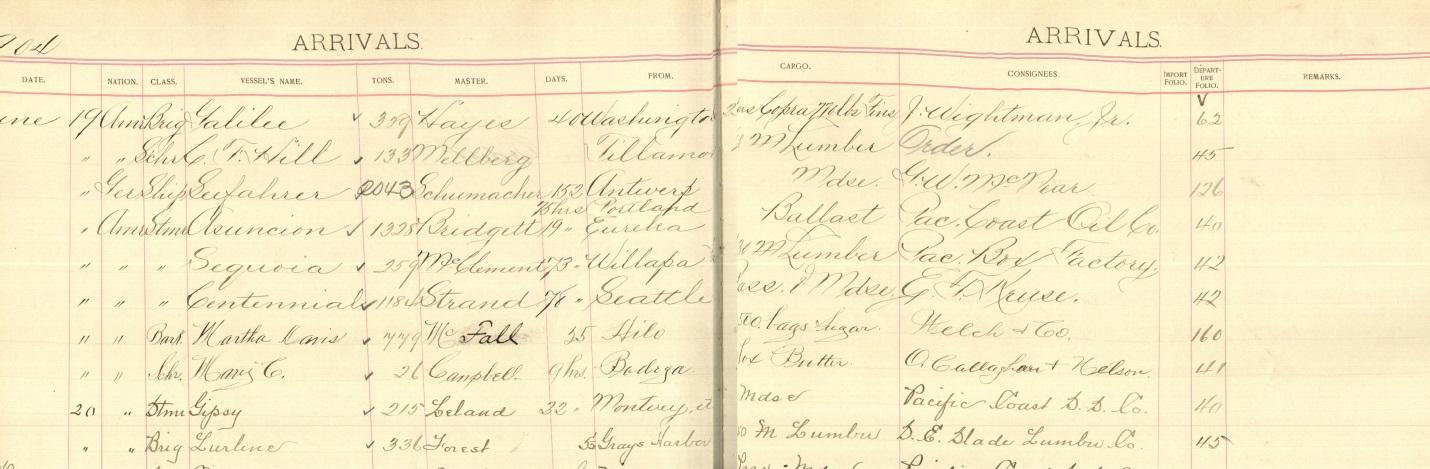 ARRIVALS. ARRIVALS.
DATE. NATION. CLASS. VESSEL'S NAME. TONS. MASTER. DAYS. FROM. CARGO. CONSIGNEES. IMPORT FOLIO. DEPARTURE FOLIO. REMARKS.
19 Am Brig Galilee 329 Hayes 40 Washingto Copra Fins J. Wightman Jr. 62
" " Schr C. T. Hill 133 Mellberg Tillamo M Lumber Order. 45
" Ger Ship Seefahrer 2043 Schumacher 152 Antwerp Mdse. G. W. McNear 126
75 hrs Portland
" Am Stmr Asuncion 1325 Bridgett 19 " Eureka Ballast Pac. Coast Oil Co. 40
" " " Sequoia 259 McClement 73 " Willapa M Lumber Pac. Box Factory 42
" " " Centennial Strand 76 " Seattle Mdse. E. T. Kruse. 42
" " Bark Martha Davis 779 Mc Fall 25 Hilo bags Sugar. Welch & Co. 160
" " Schr. Mary C. 26 Campbell 9 hrs. Bodega Butter. O'Callaghan & Nelson. 41
20 " Stmr Gipsy 215 Leland 22 " Monterey, et Mdse Pacific Coast S. S. Co. 40
" " Brig Lurline 336 Forest Grays Harbor M Lumber S. E. Slade Lumber Co. 45